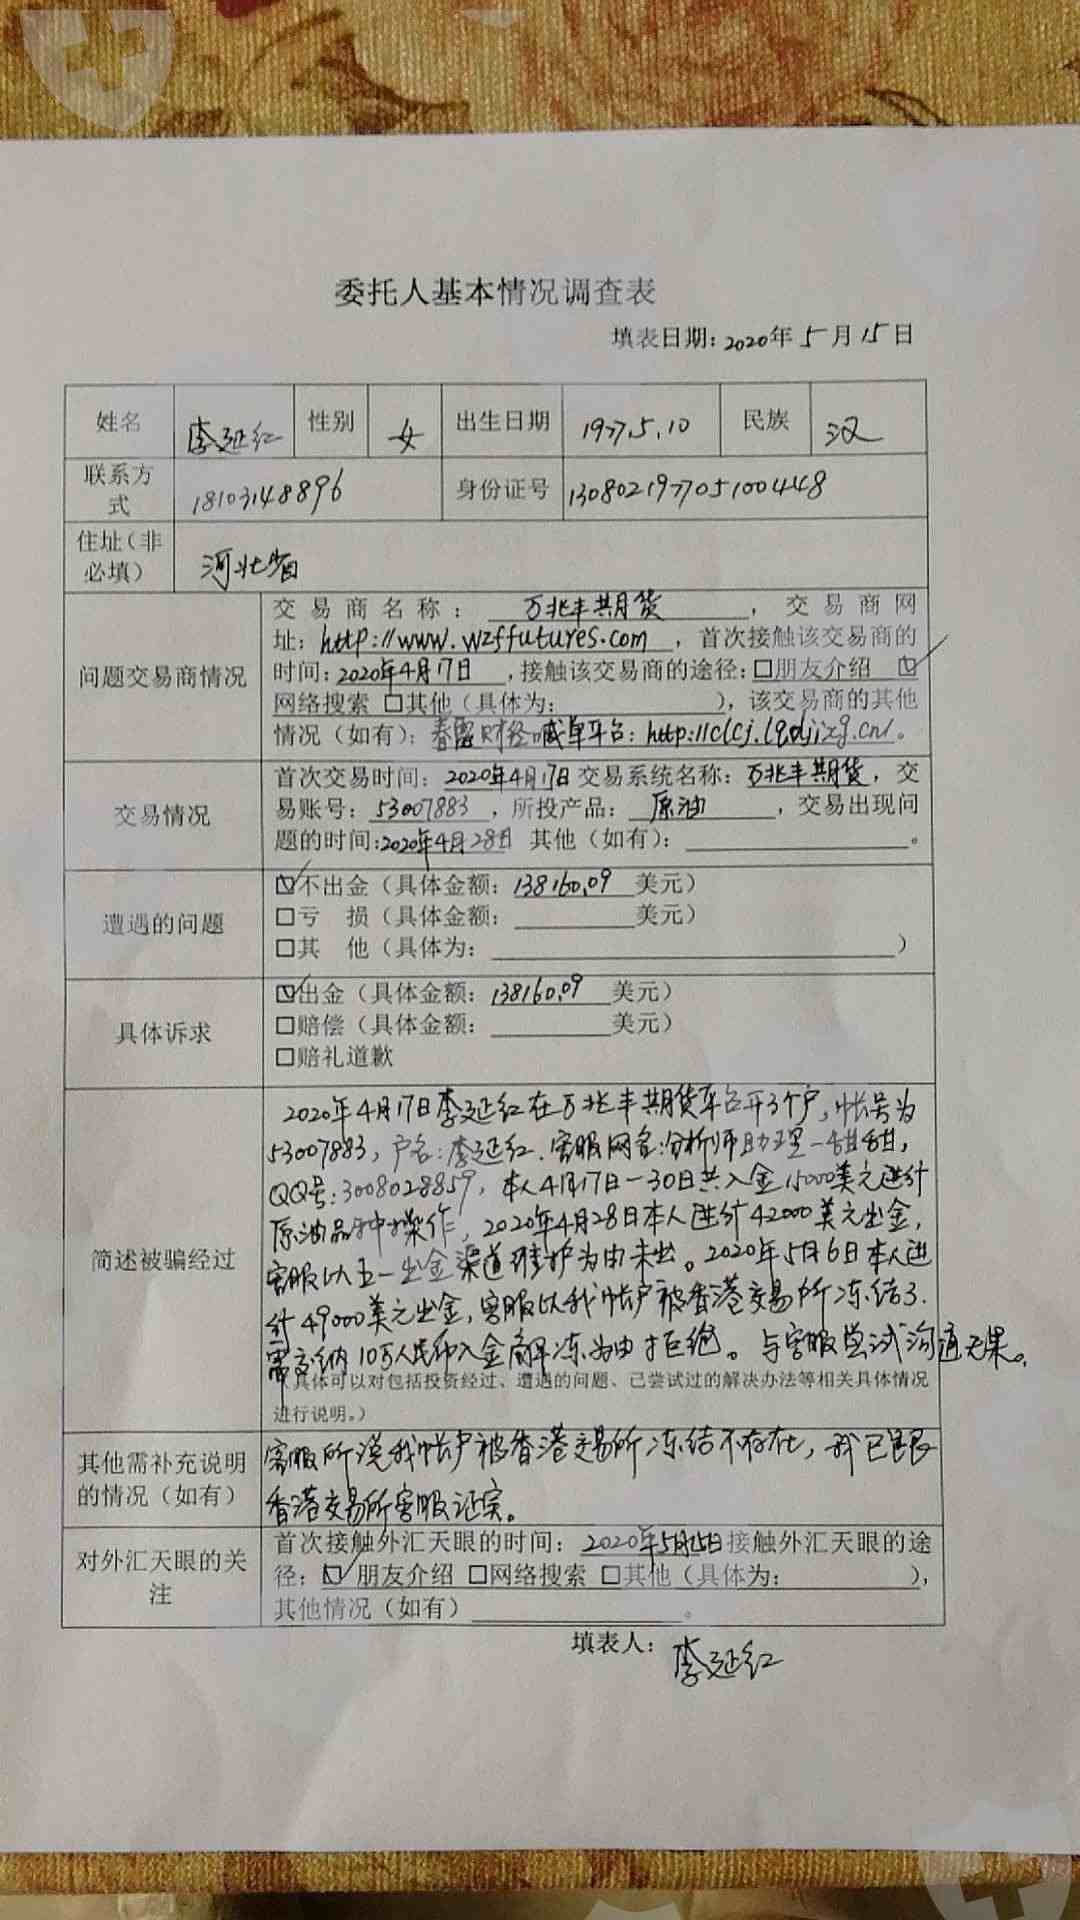 委托人基本情况调查表
填表日期：2020年5月15日
姓名 李延红 性别 女 出生日期 1977.5.10 民族 汉
联系方式 18103148896 身份证号 130802197705100448
住址（非必填） 河北省
问题交易商情况
交易商名称： 万兆丰期货 ，交易商网
址：http://www.wzffutures.com ，首次接触该交易商的
时间：2020年4月17日 ，接触该交易商的途径：□朋友介绍 ☑
网络搜索 □其他（具体为： ），该交易商的其他
情况（如有）：春留财经喊单平台：http://clcj.lqdjizg.cn/。
交易情况
首次交易时间：2020年4月17日交易系统名称：万兆丰期货，交
易账号：53007883 ，所投产品： 原油 ，交易出现问
题的时间：2020年4月28日 其他（如有）： 。
遭遇的问题
☑不出金（具体金额：138160.09 美元）
□亏 损（具体金额： 美元）
□其 他（具体为： ）
具体诉求
☑出金（具体金额：138160.09 美元）
□赔偿（具体金额： 美元）
□赔礼道歉
简述被骗经过
2020年4月17日李延红在万兆丰期货平台开了个户，帐号为
53007883，户名：李延红．客服网名：分析师助理－甜甜，
QQ号：3008028859，本人4月17日－30日共入金15000美元进行
原油品种操作，2020年4月28日本人进行42000美元出金，
客服以五一出金渠道维护为由未出。2020年5月6日本人进
行49000美元出金，客服以我帐户被香港交易所冻结了．
需交纳10万人民币入金解冻为由拒绝。与客服尝试沟通无果。
（具体可以对包括投资经过、遭遇的问题、已尝试过的解决办法等相关具体情况
进行说明。）
其他需补充说明的情况（如有）
客服所说我帐户被香港交易所冻结不存在，我已跟
香港交易所客服证实。
对外汇天眼的关注
首次接触外汇天眼的时间：2020年5月15日接触外汇天眼的途
径：☑朋友介绍 □网络搜索 □其他（具体为： ），
其他情况（如有） 。
填表人：李延红